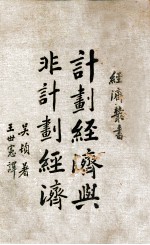 經濟叢書
計劃經濟與
非計劃經濟
吳頓著
王世憲譯